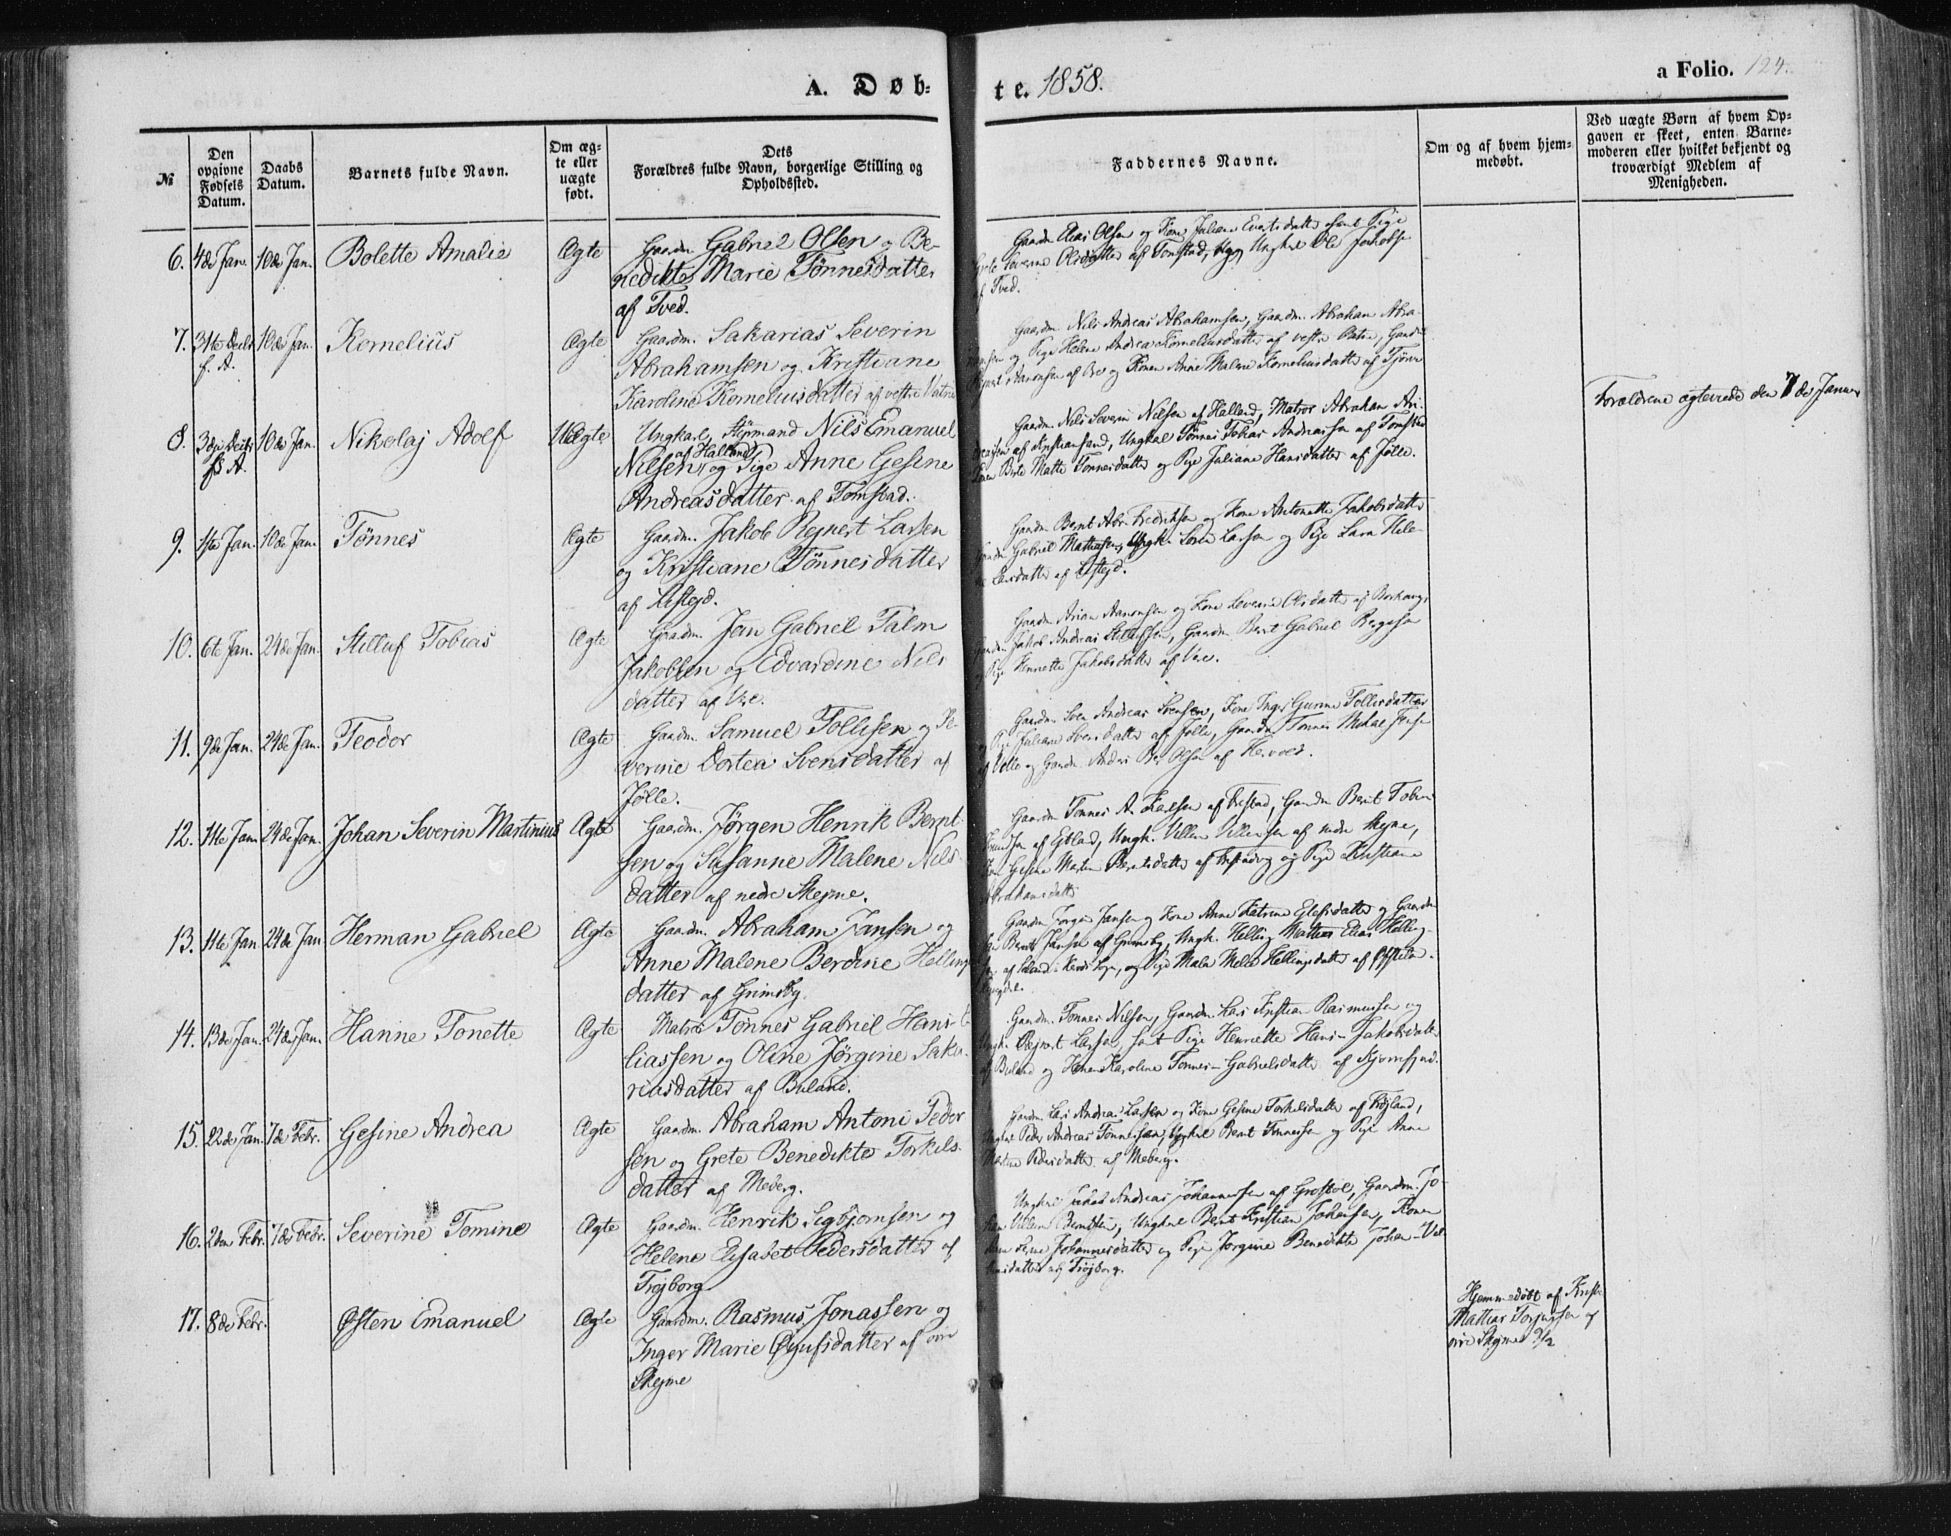 A. Døb=
te. 1858.
a Folio. 124.
№
Den opgivne Fødsels Datum.
Daabs Datum.
Barnets fulde Navn.
Om ægte eller uægte født.
Dets Forældres fulde Navn, borgerlige Stilling og Opholdssted.
Faddernes Navne.
Om og af hvem hjemmedøbt.
Ved uægte Børn af hvem Opgaven er skeet, enten Barnemoderen eller hvilket bekjendt og troværdigt Medlem af Menigheden.
6. 4de Jan. 10de Jan. Bolette Amalie Ægte Gaardm. Gabriel Olsen og Be-
nedikte Marie Tønnesdatter
af Tved.
Gaardm. Elias Olsen og Kone Juliane samt Pige
Grete Severine Olsdatter af Tomstad, Ungkarl Ole Jakobs
af Tved.
7. 31te Decbr f. A. 10de Jan. Kornelius Ægte Gaardm. Sakarias Severin
Abrahamsen og Kristiane
Karoline Korneliusdatter af vestre Vatne
Gaardm. Nils Andreas Abrahamsen, Gaardm. Abraham Abra-
hamsen og Pige Helene Andrea Korneliusdatter af vestre Vatne, Gaardm
Aanonsen af Bre og Konen Anne Malene Korneliusdatter af Tjørve
8. 3die Decbr f. A. 10de Jan. Nikolaj Adolf Uægte Ungkarl, Styrmand Nils Emanuel
Nilsen af Halland og Pige Anne Gesine
Andreasdatter af Tomstad.
Gaardm. Nils Severin Nilsen af Halland, Matros Abraham An-
dreassen af Kristiansand, Ungkal Tønnes Tobias Andreassen af Tomstad
Konen Berte Matte Tønnesdatter og Pige Juliane Hansdatter af Jølle.
Forældrene ægteviede den 7de Januar
9. 1ste Jan. 10de Jan. Tønnes Ægte Gaardm. Jakob Rejnert Larsen
og Kristiane Tønnesdatter
af
Gaardm. Bernt Abr. Fredriksen og Kone Antonette Jakobsdatter
Gaardm. Gabriel Mathiasen, Ungk. Soren Larsen og Pige Lara Hele-
ne Larsdatter af
10. 6te Jan. 24de Jan. Stilluf Tobias Ægte Gaardm. Jan Gabriel Talm
Jakobsen og Edvardine Nils
datter af Vere.
Gaardm. Arian Aanonsen og Kone Severine Olsdatter af Borhaug,
Gaardm. Jakob Andreas Stillufsen, Gaardm. Bernt Gabriel
og Pige Henrette Jakobsdatter af Vere.
11. 9de Jan. 24de Jan. Teodor Ægte Gaardm. Samuel Tollisen og Se-
verine Dortea Svensdatter af
Jølle.
Gaardm. Sven Andreas Svensen, Kone Inger Gurine Tollisdatter
og Pige Juliane Svensdatter af Jølle, Gaardm. Tønnes Mikal
af Jølle og Gaardm. Andres Olsen af Hervoll.
12. 11te Jan. 24de Jan. Johan Severin Martinius Ægte Gaardm. Jørgen Henrik Bernt
sen og Susanne Malene Nils
datter af nedre Skejme.
Gaardm. Tønnes A. Larsen af Frestad, Gaardm. Bernt Tobias
af Egeland, Ungk. Villum Villumsen af nedre Skejme,
Kone Gesine Martine Berntsdatter af og Pige Kristiane
Abrahamsdatter
13. 11te Jan. 24de Jan. Herman Gabriel Ægte Gaardm. Abraham Jansen og
Anne Malene Berdine Hellings
datter af Grimsby.
Gaardm Jørgen Jansen og Kone Anne Katrine og Gaardm
Bernt Jansen af Grimsby, Ungk. Helling Mathias Elias Helling-
sen af og Pige Malene Hellingsdatter af
14. 13de Jan. 24de Jan. Hanne Tonette Ægte Matros Tønnes Gabriel Hans E-
liassen og Oline Jørgine Saka-
riasdatter af Buland.
Gaardm. Tønnes Nilsen, Gaardm. Lars Kristian Rasmussen og
Ungk. Rejnert Larsen, samt Pige Henriette Hans-Jakobsdatter
af Buland og Konen Karoline Tønnes-Gabrielsdatter af
15. 22de Jan. 7de Febr. Gesine Andrea Ægte Gaardm. Abraham Antoni Peder
sen og Grete Benedikte Torkels-
datter af Meberg.
Gaardm. Lars Andreas Larsen og Kone Gesine Torkelsdatter af
Ungkarl Peder Andreas Tønnessen, Ungkarl Bernt Tønnessen og Pige Anne
Martine Pedersdatter af Meberg.
16. 2den Febr. 7de Febr. Severine Tomine Ægte Gaardm. Henrik Sigbjørnsen og
Helene Elisabet Pedersdatter af
Trøjborg
Ungkarl Jakob Andreas Johannessen af Grostøl, Gaardm. Jo-
han Villum Berntsen, Ungkarl Bernt Kristian Johansen, Konen
Johannesdatter og Pige Jørgine Benedikte Johan-Vil-
lumsdatter af Trøjborg.
17. 8de Febr. Østen Emanuel Ægte Gaardm. Rasmus Jonassen og
Inger Marie Øjufsdatter af øvre
Skejme
Hjemmedøbt af Krist.
Mathias Torjussen af
øvre Skejme 9/2